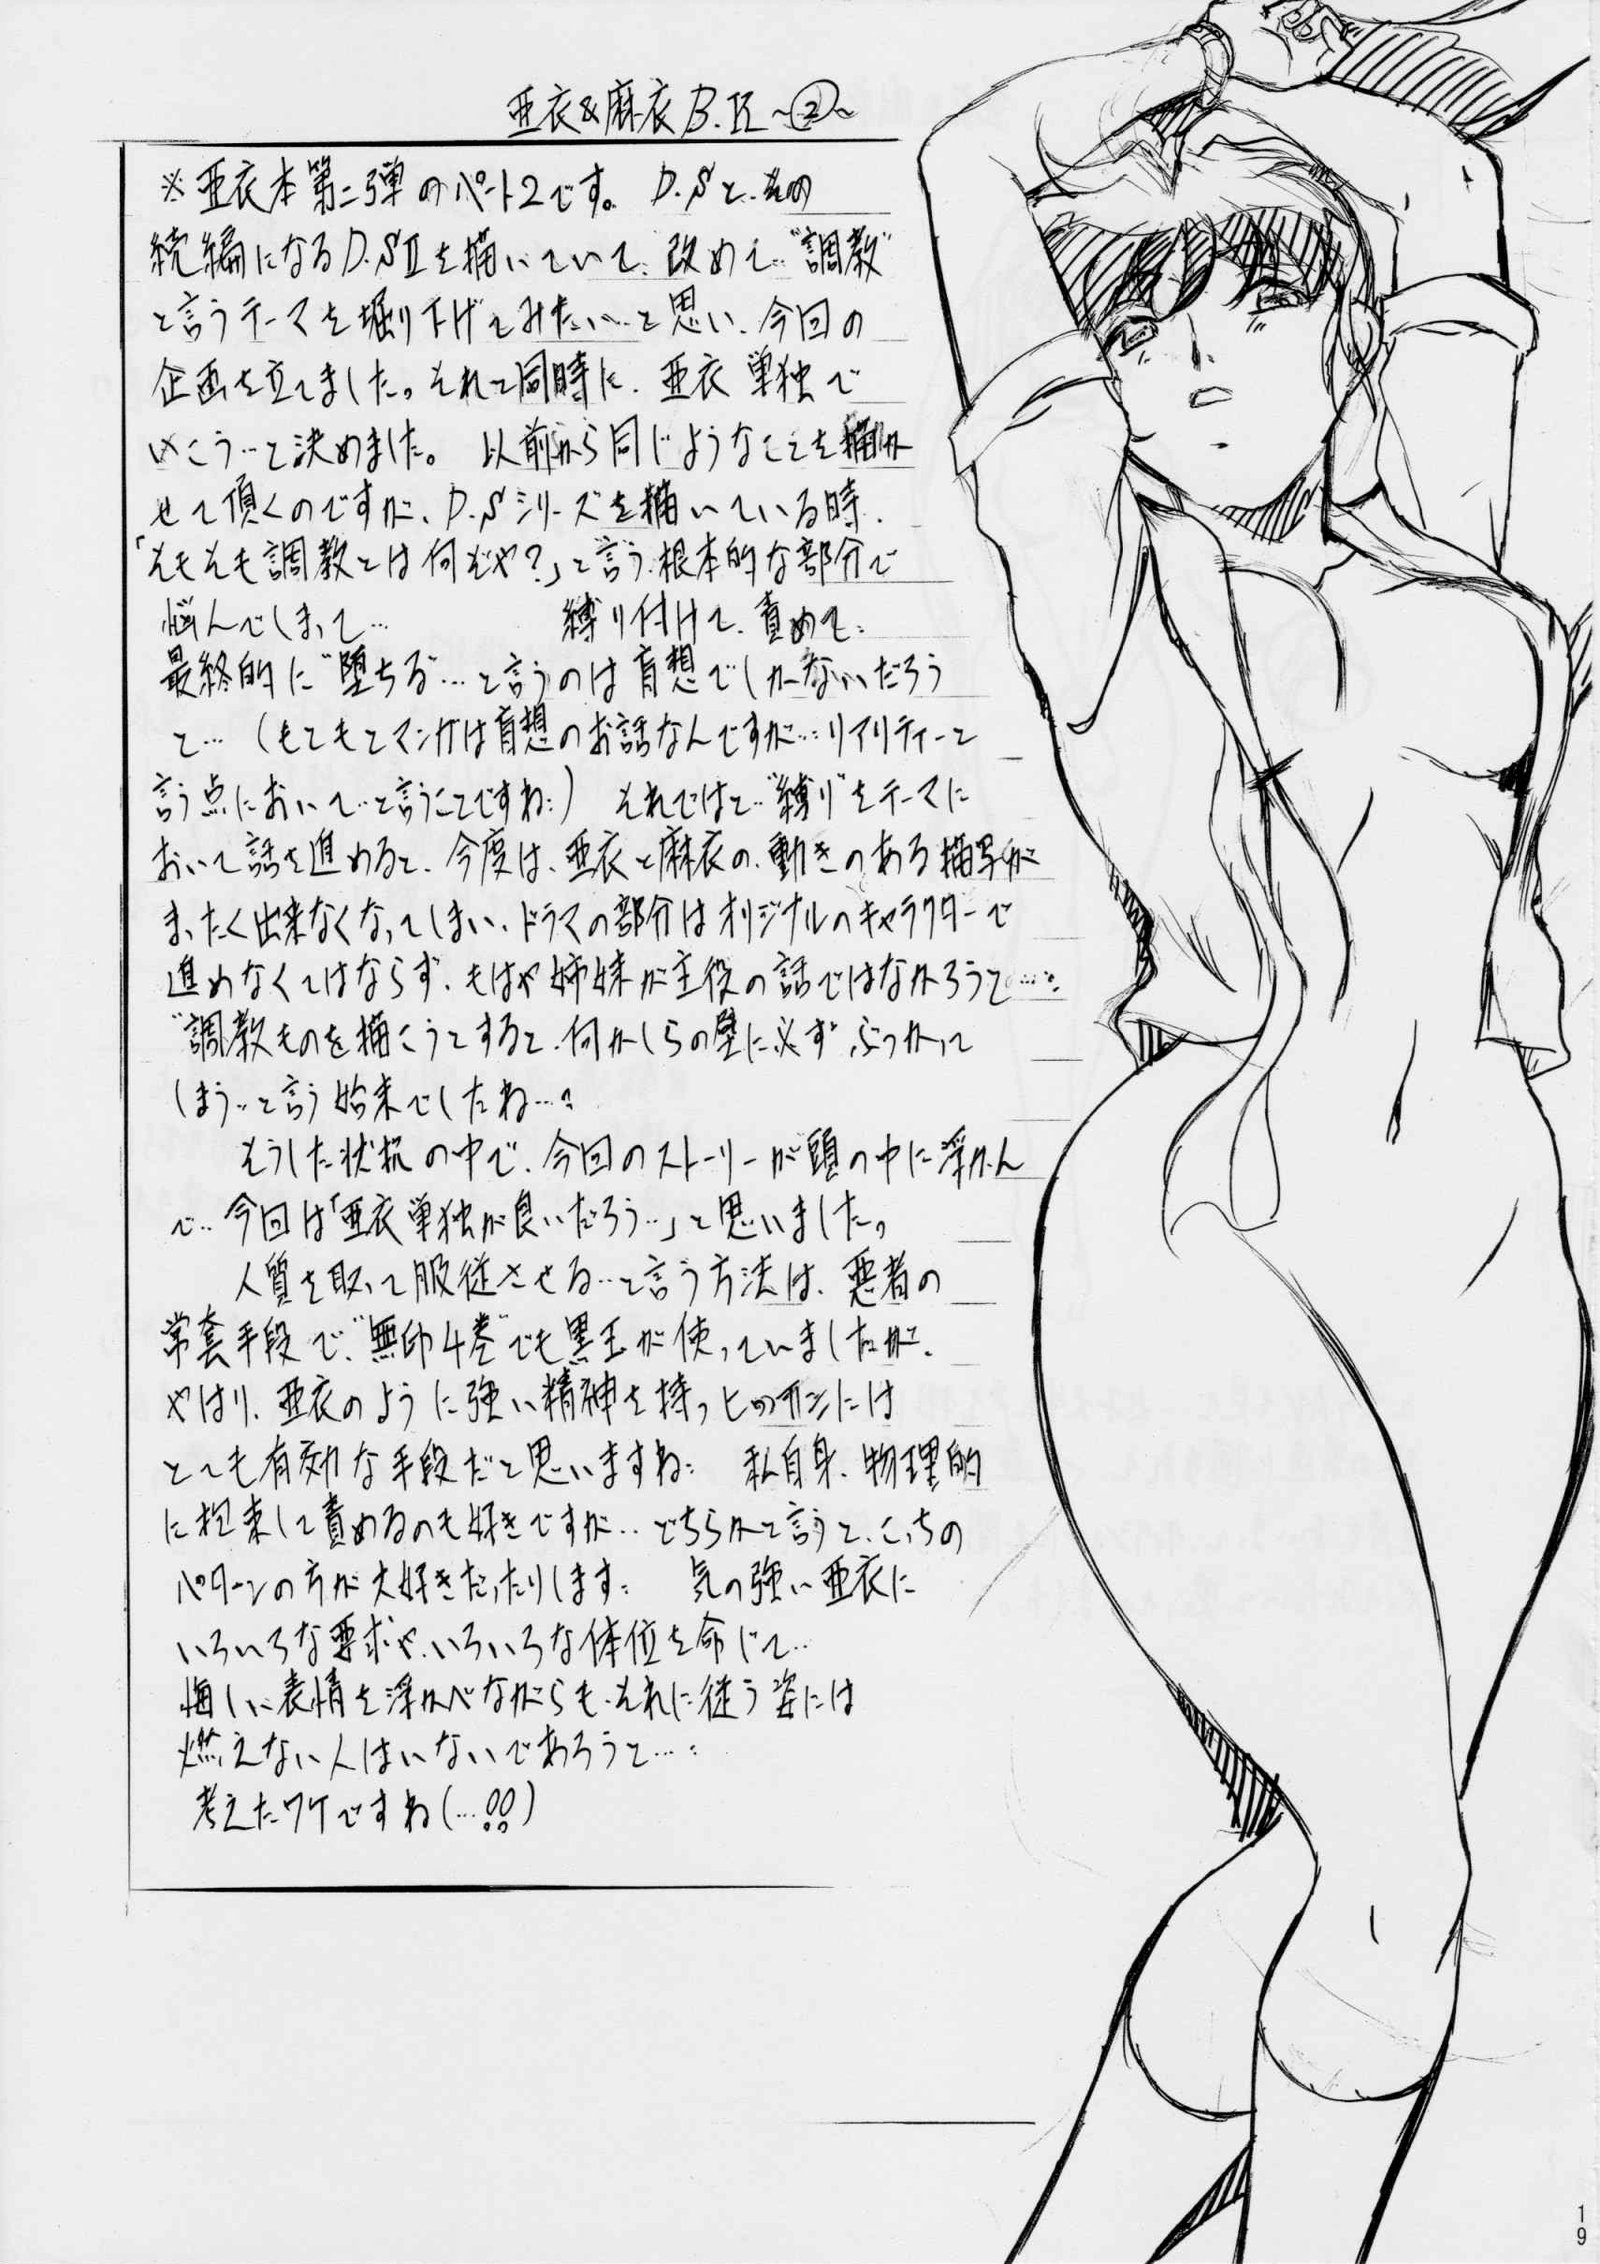 亜衣&麻衣 B.R ~②~
※亜衣本第二弾のパート2です。 D.Sと、その
続編になるD.SⅡを描いていて、改めて…"調教"
と言うテーマを堀り下げてみたい…と思い、今回の
企画を立てました。それと同時に、亜衣単独で
いこう…と決めました。 以前から同じようなことを描か
せて頂くのですが、D.Sシリーズを描いている時、
「そもそも調教とは何ぞや?」と言う、根本的な部分で
悩んでしまって… 縛り付けて、責めて、
最終的に"堕ちる"…と言うのは盲想でしかないだろう
と…(もともとマンガは盲想のお話なんですが…リアリティーと
言う点において…と言うことですね) それではと…"縛り"をテーマに
おいて話を進めると、今度は、亜衣と麻衣の、動きのある描写が
まったく出来なくなってしまい、ドラマの部分はオリジナルのキャラクターで
進めなくてはならず、もはや姉妹が主役の話ではなかろうと…
"調教ものを描こうとすると、何かしらの壁に必ずぶつかって
しまう…と言う始末でしたね…。
そうした状況の中で、今回のストーリーが頭の中に浮かん
で…今回は「亜衣単独が良いだろう…」と思いました。
人質を取って服従させる…と言う方法は、悪者の
常套手段で、"無印4巻"でも黒玉が使っていましたが、
やはり、亜衣のように強い精神を持つヒロインには
とても有効な手段だと思いますね 私自身、物理的
に拘束して責めるのも好きですが…どちらかと言うと、こっちの
パターンの方が大好きだったりします 気の強い亜衣に
いろいろな要求や、いろいろな体位を命じて…
悔しい表情を浮かべながらも、それに従う姿には
燃えない人はいないであろうと…
考えたワケですね(…!!)
19